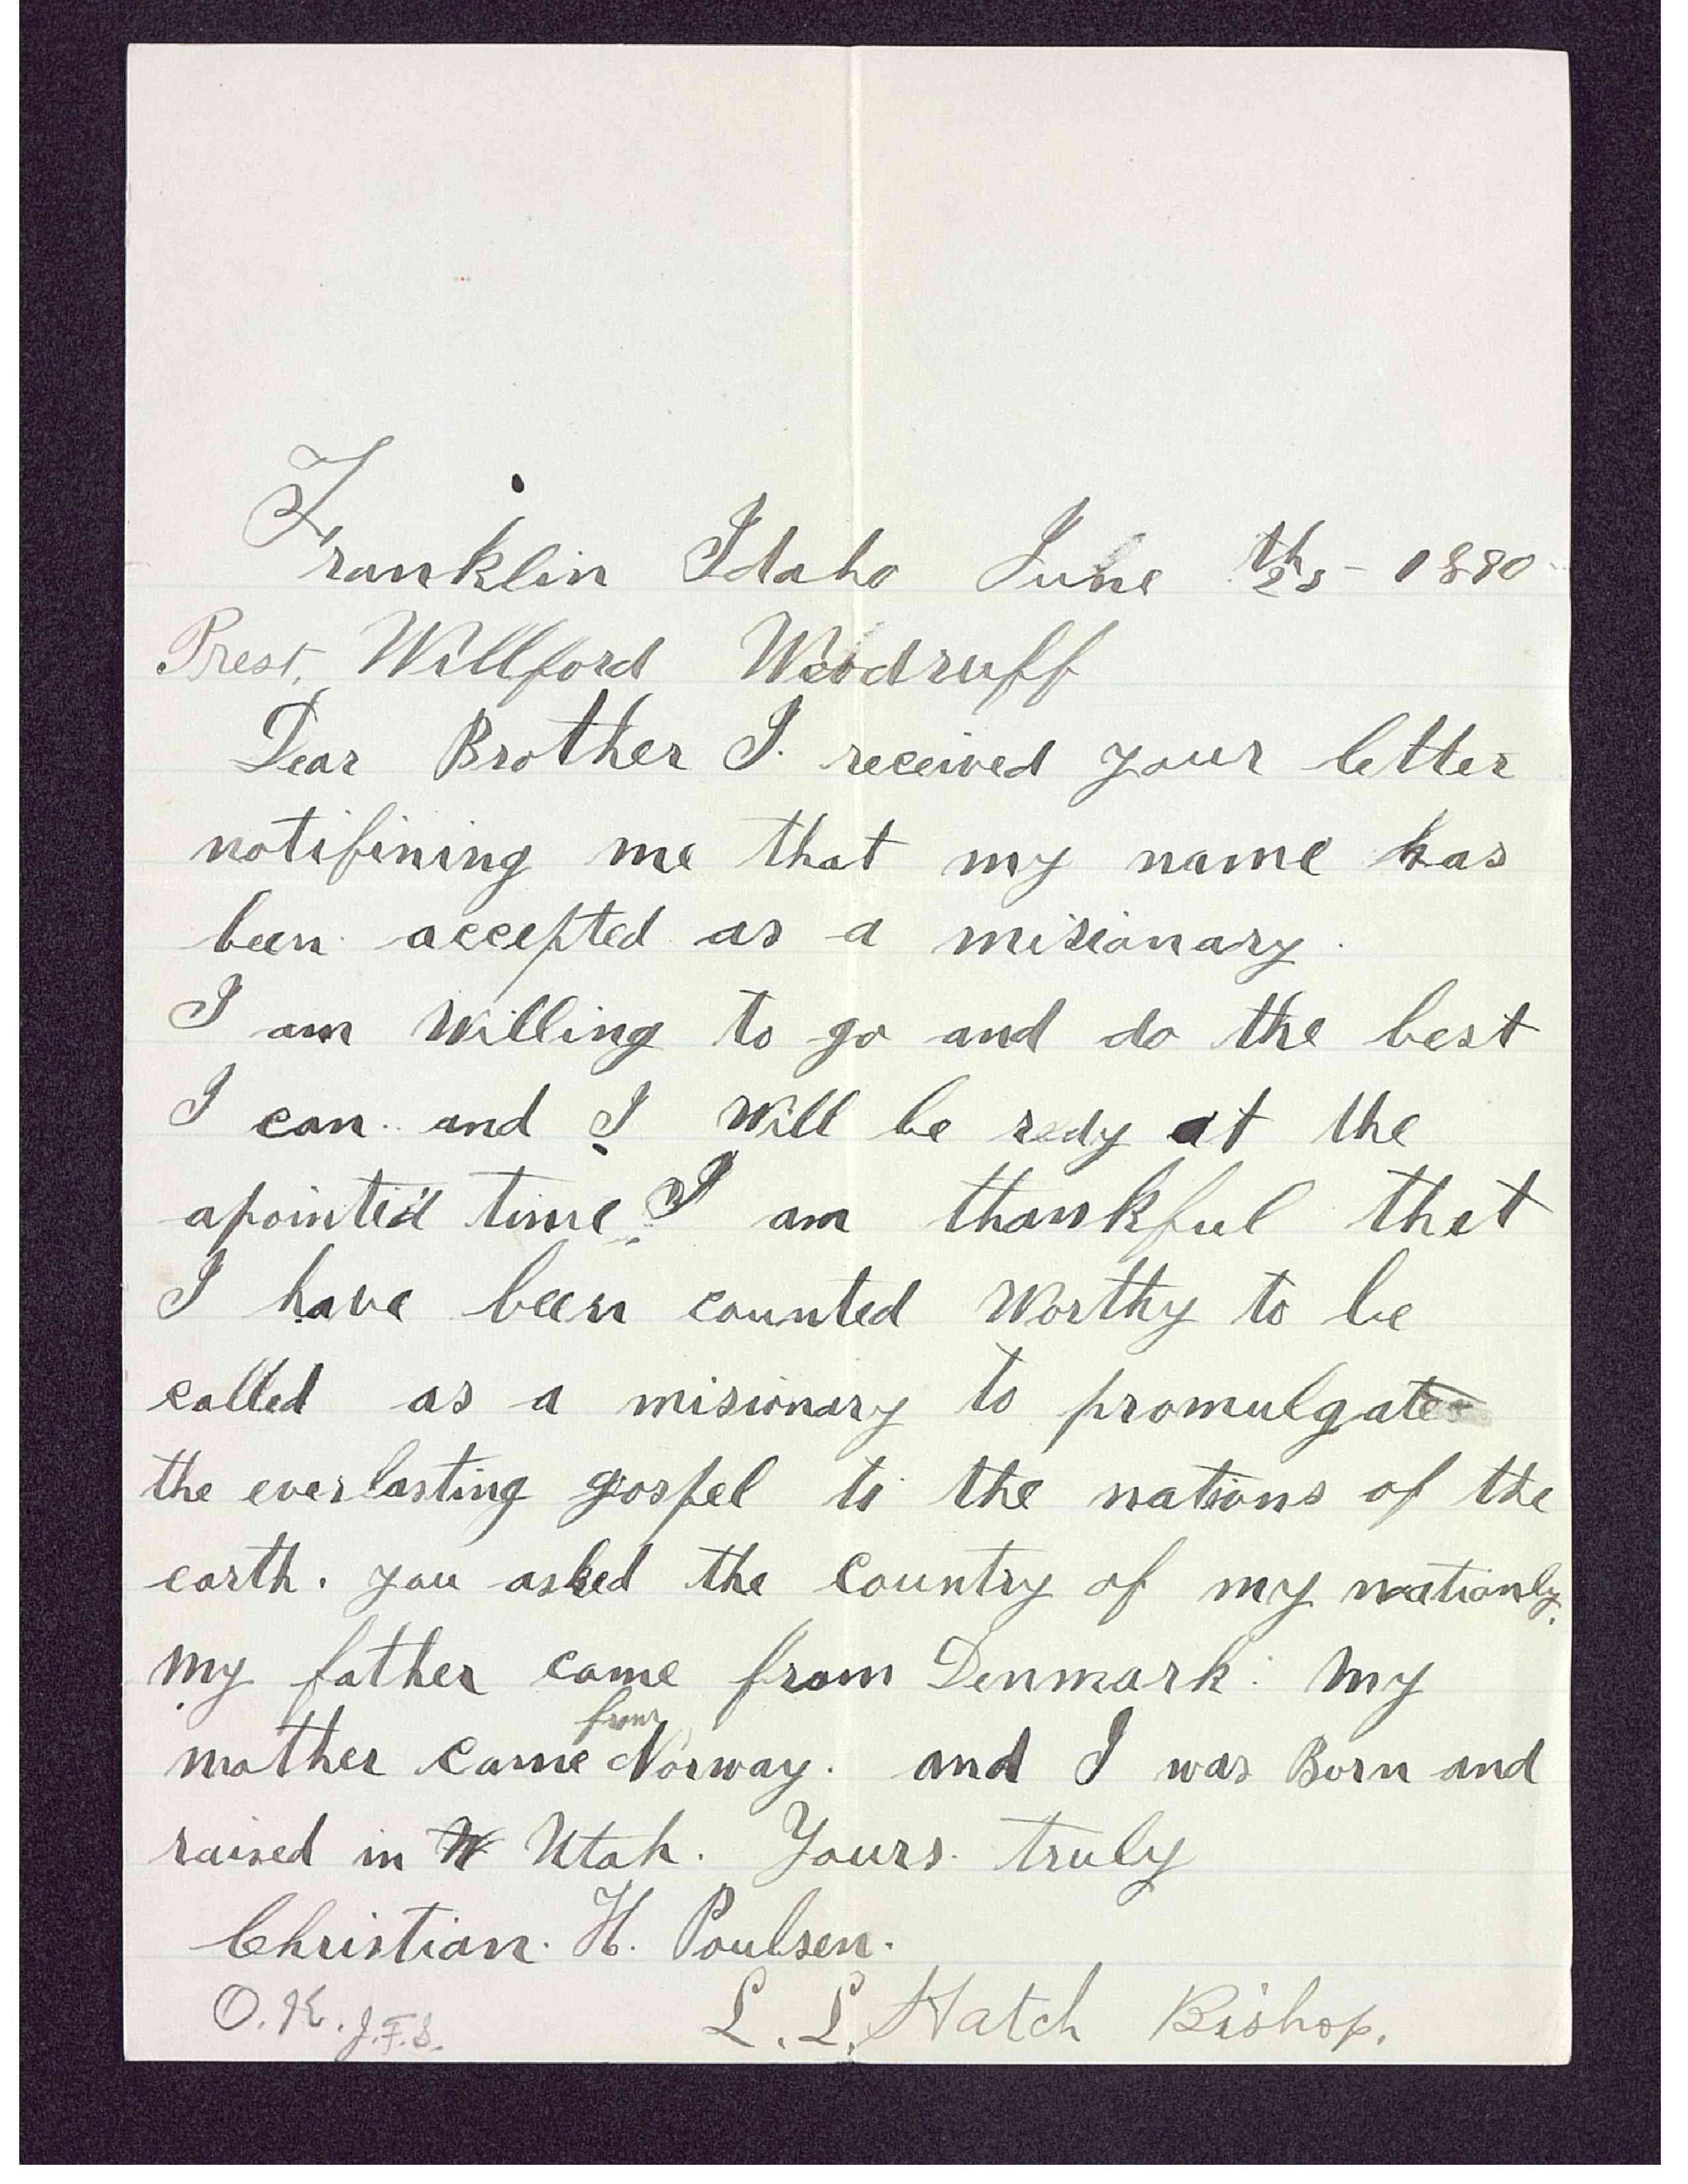 Franklin Idaho June 28th - 1890
Prest. Willford Woodruff
Dear Brother I. received your letter
notifining me that my name has
been accepted as a misionary.
I am willing to go and do the best
I can. and I will be redy at the
apointed time. I am thankful that
I have been counted worthy to be
called as a misionary to promulgate
the everlasting gospel to the nations of the
earth. you asked the country of my nationly.
my father came from Denmark. my
mother came from Norway. and I was Born and
raised in Utah. Yours. truly
Christian. H. Poulsen.
O.K. J.F.S. L. L. Hatch Bishop.